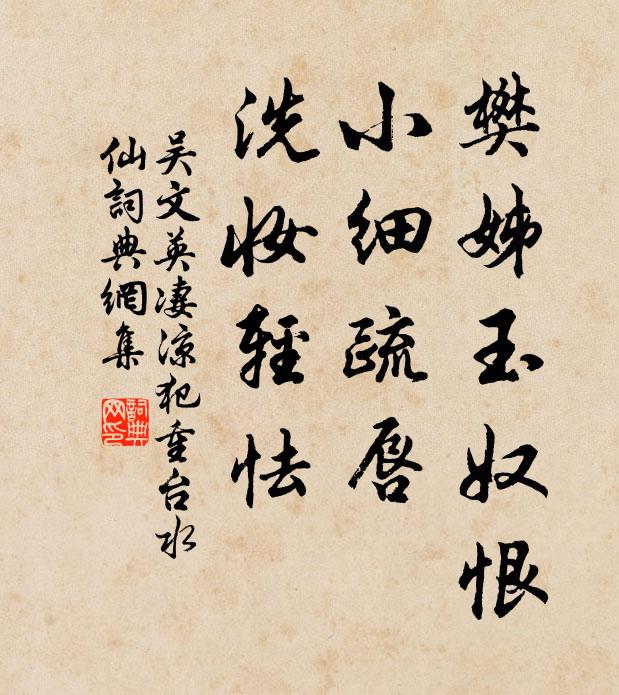 樊姊玉奴恨
小细疏唇
洗妆轻怯
吴文英凄凉犯重台水
仙詞典網集
詞典
网印